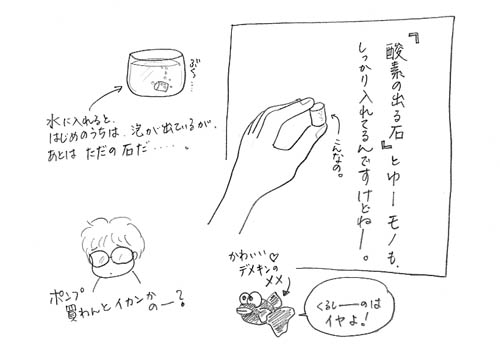 『酸素の出る石』とゆーモノも、
しっかり入れてるんですけどねー。
こんなの。
ぶく…
水に入れると、
はじめのうちは、泡が出ているが、
あとは ただの石だ‥‥‥。
ポンプ
買わんとイカンか
のー?
かわいい♡
デメキンの
メメ
くるしーーのは
イヤよ!